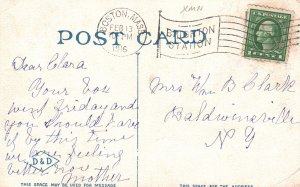 XMAS
BOSTON, MASS.
FEB 13
PM
1916
STATION
POST CARD
Dear Clara
Your box
went Friday and
you should have
it by this time
we are feeling
better now
Mother
Mrs Wm B Clark
Baldwinsville
N Y
D&D
THIS SPACE MAY BE USED FOR MESSAGE
THIS SPACE FOR ADDRESS ONLY